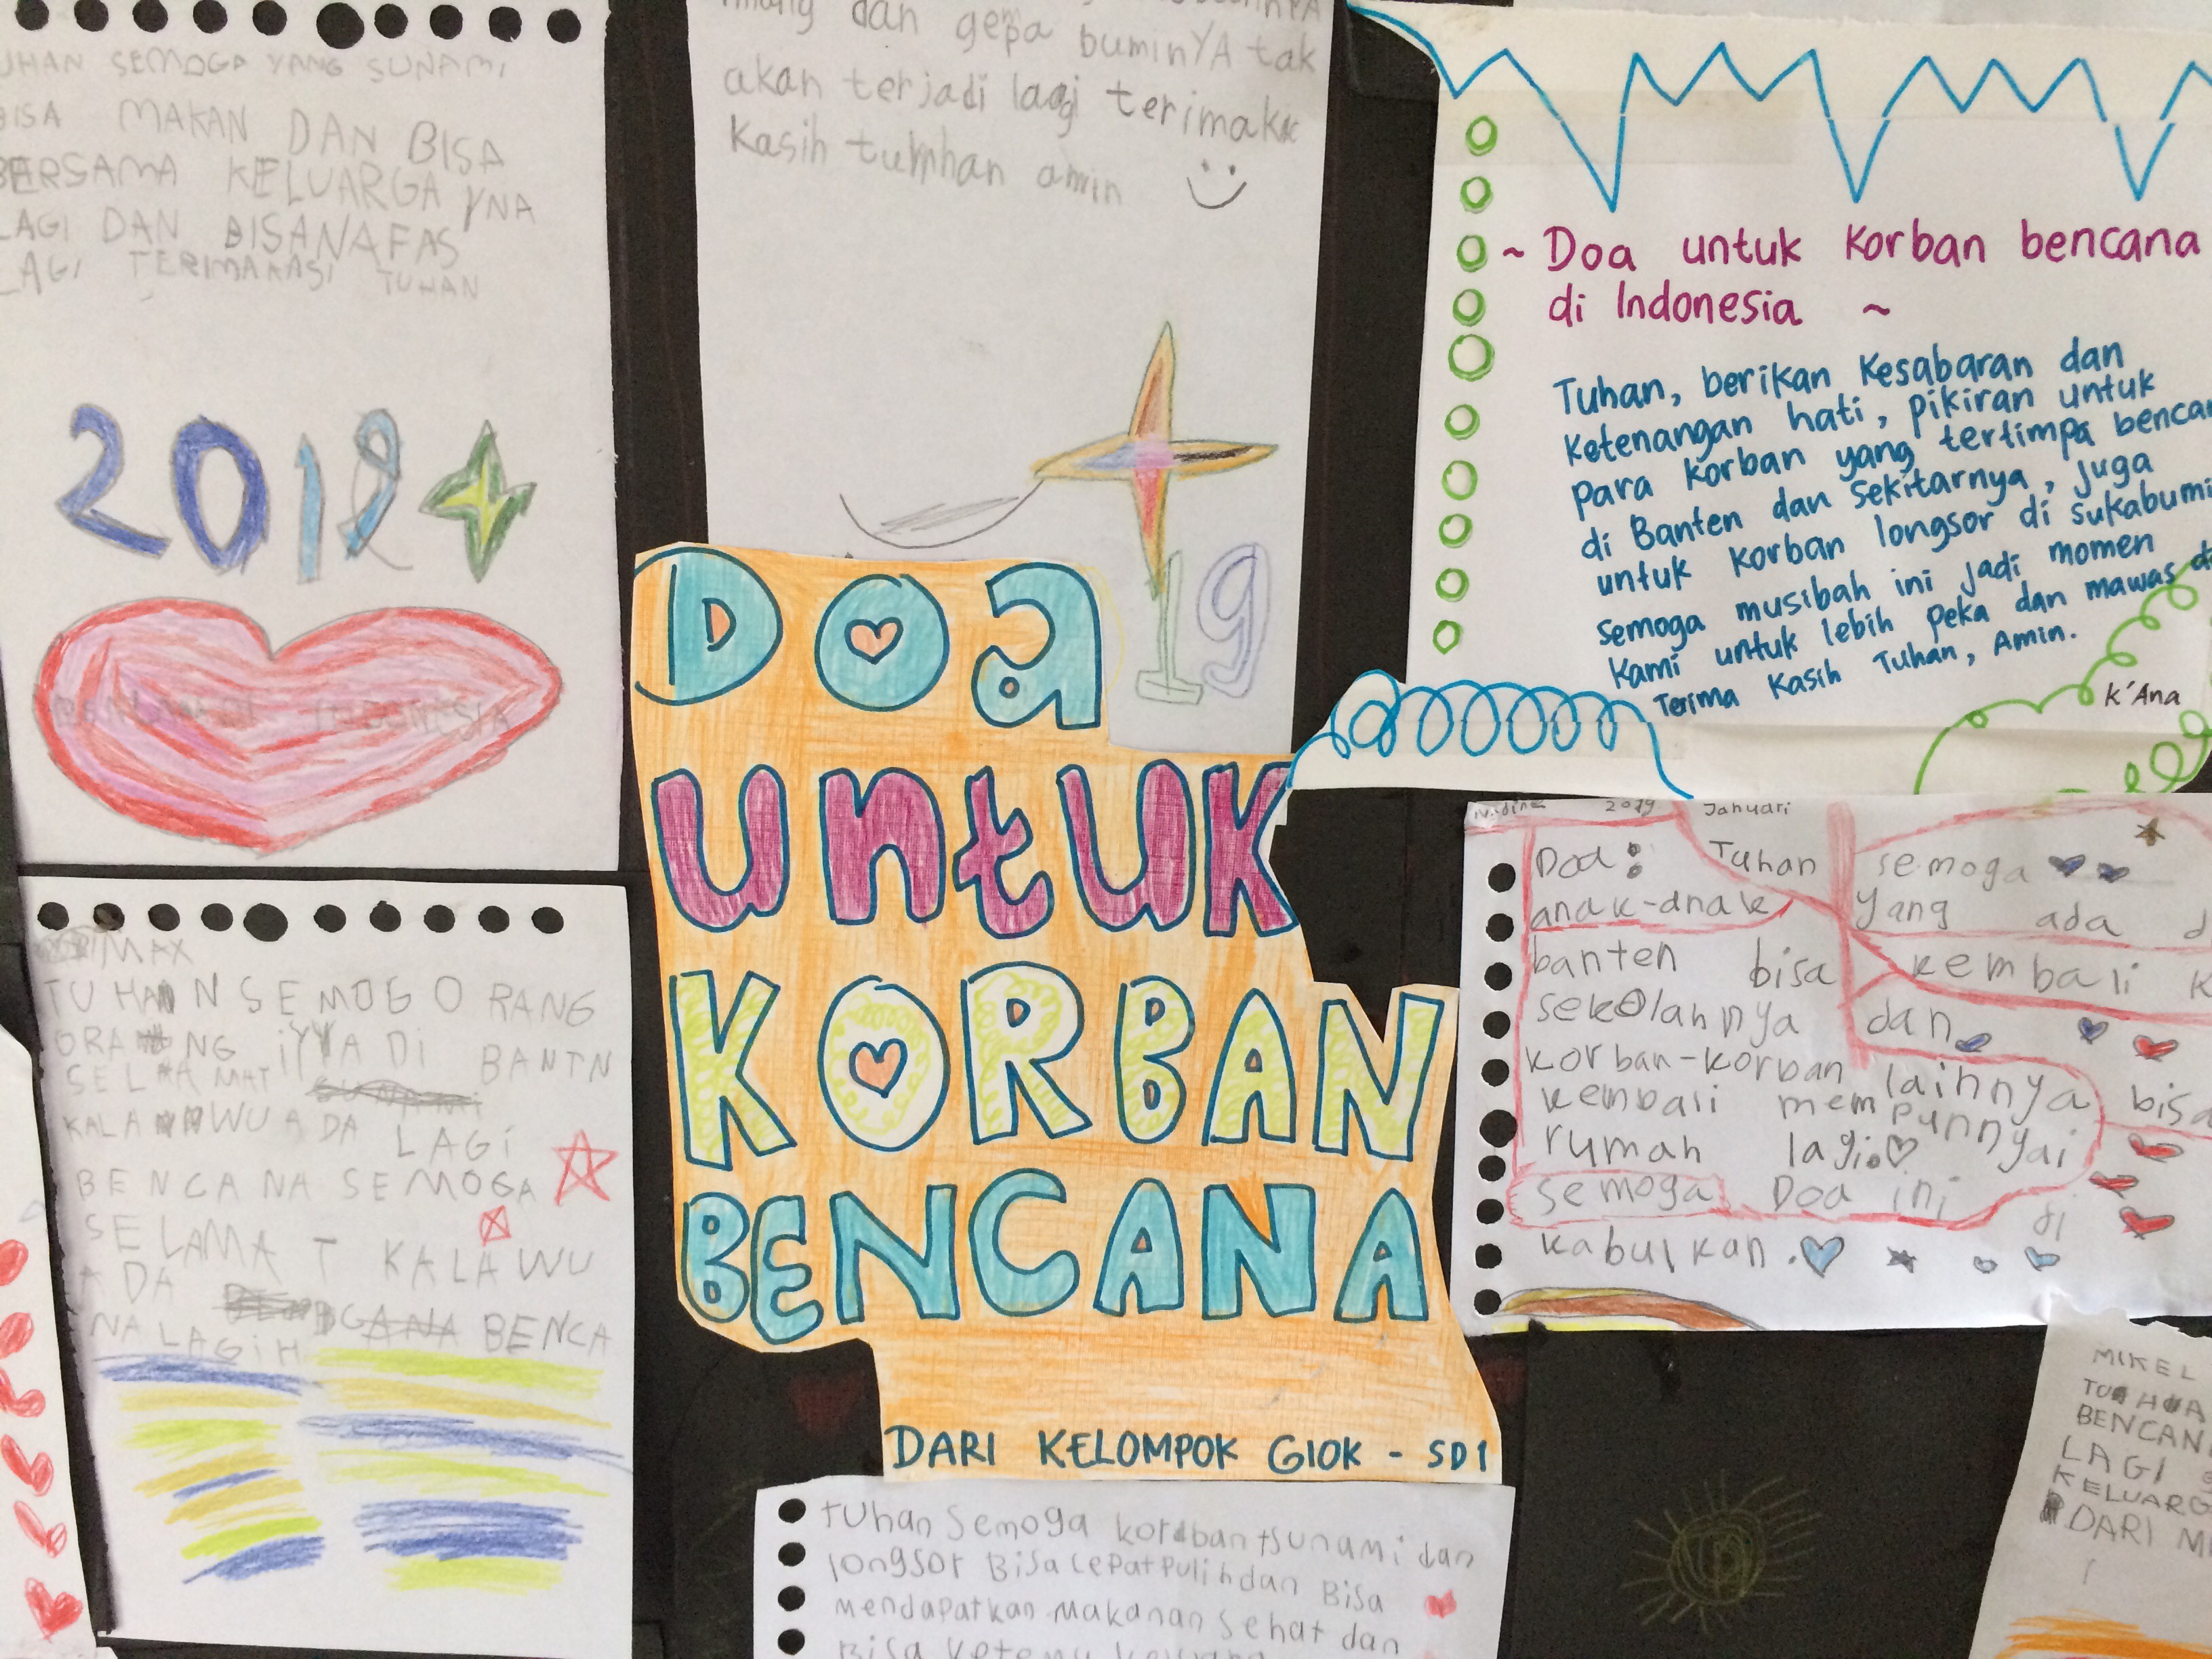 SEMOGA YANG SUNAMI
BISA MAKAN DAN BISA
BERSAMA KELUARGA YNA
LAGI DAN BISANAFAS
LAGI TERIMAKASI TUHAN
2019
INDONESIA
dan gepa buminYA tak
akan terjadi lagi terimak
kasih tumhan amin
19
~ Doa untuk korban bencana
di Indonesia ~
Tuhan, berikan kesabaran dan
ketenangan hati, pikiran untuk
para korban yang tertimpa bencan
di Banten dan sekitarnya, juga
untuk korban longsor di sukabumi
semoga musibah ini jadi momen
kami untuk lebih peka dan mawas di
Terima kasih Tuhan, Amin.
k'Ana
Doa
untuk
KORBAN
BENCANA
DARI KELOMPOK GIOK - SD 1
2019 Januari
Doa: Tuhan semoga
anak-anak yang ada d
banten bisa kembali k
sekolahnya dan
korban-korban lainnya bisa
kembali mempunnyai
rumah lagi.
semoga Doa ini di
kabulkan.
IMAX
TUHAN SEMOG ORANG
ORANG iYYA DI BANTN
SELAMAT
KALAWU ADA LAGI
BENCANA SEMOGA
SELAMAT KALAWU
ADA
BENCA
NA LAGIH
tuhan semoga korban tsunami dan
longsor Bisa cepat pulih dan Bisa
mendapatkan makanan sehat dan
Bisa ketemu
MIKEL
BENCAN
LAGI
KELUARG
DARI M